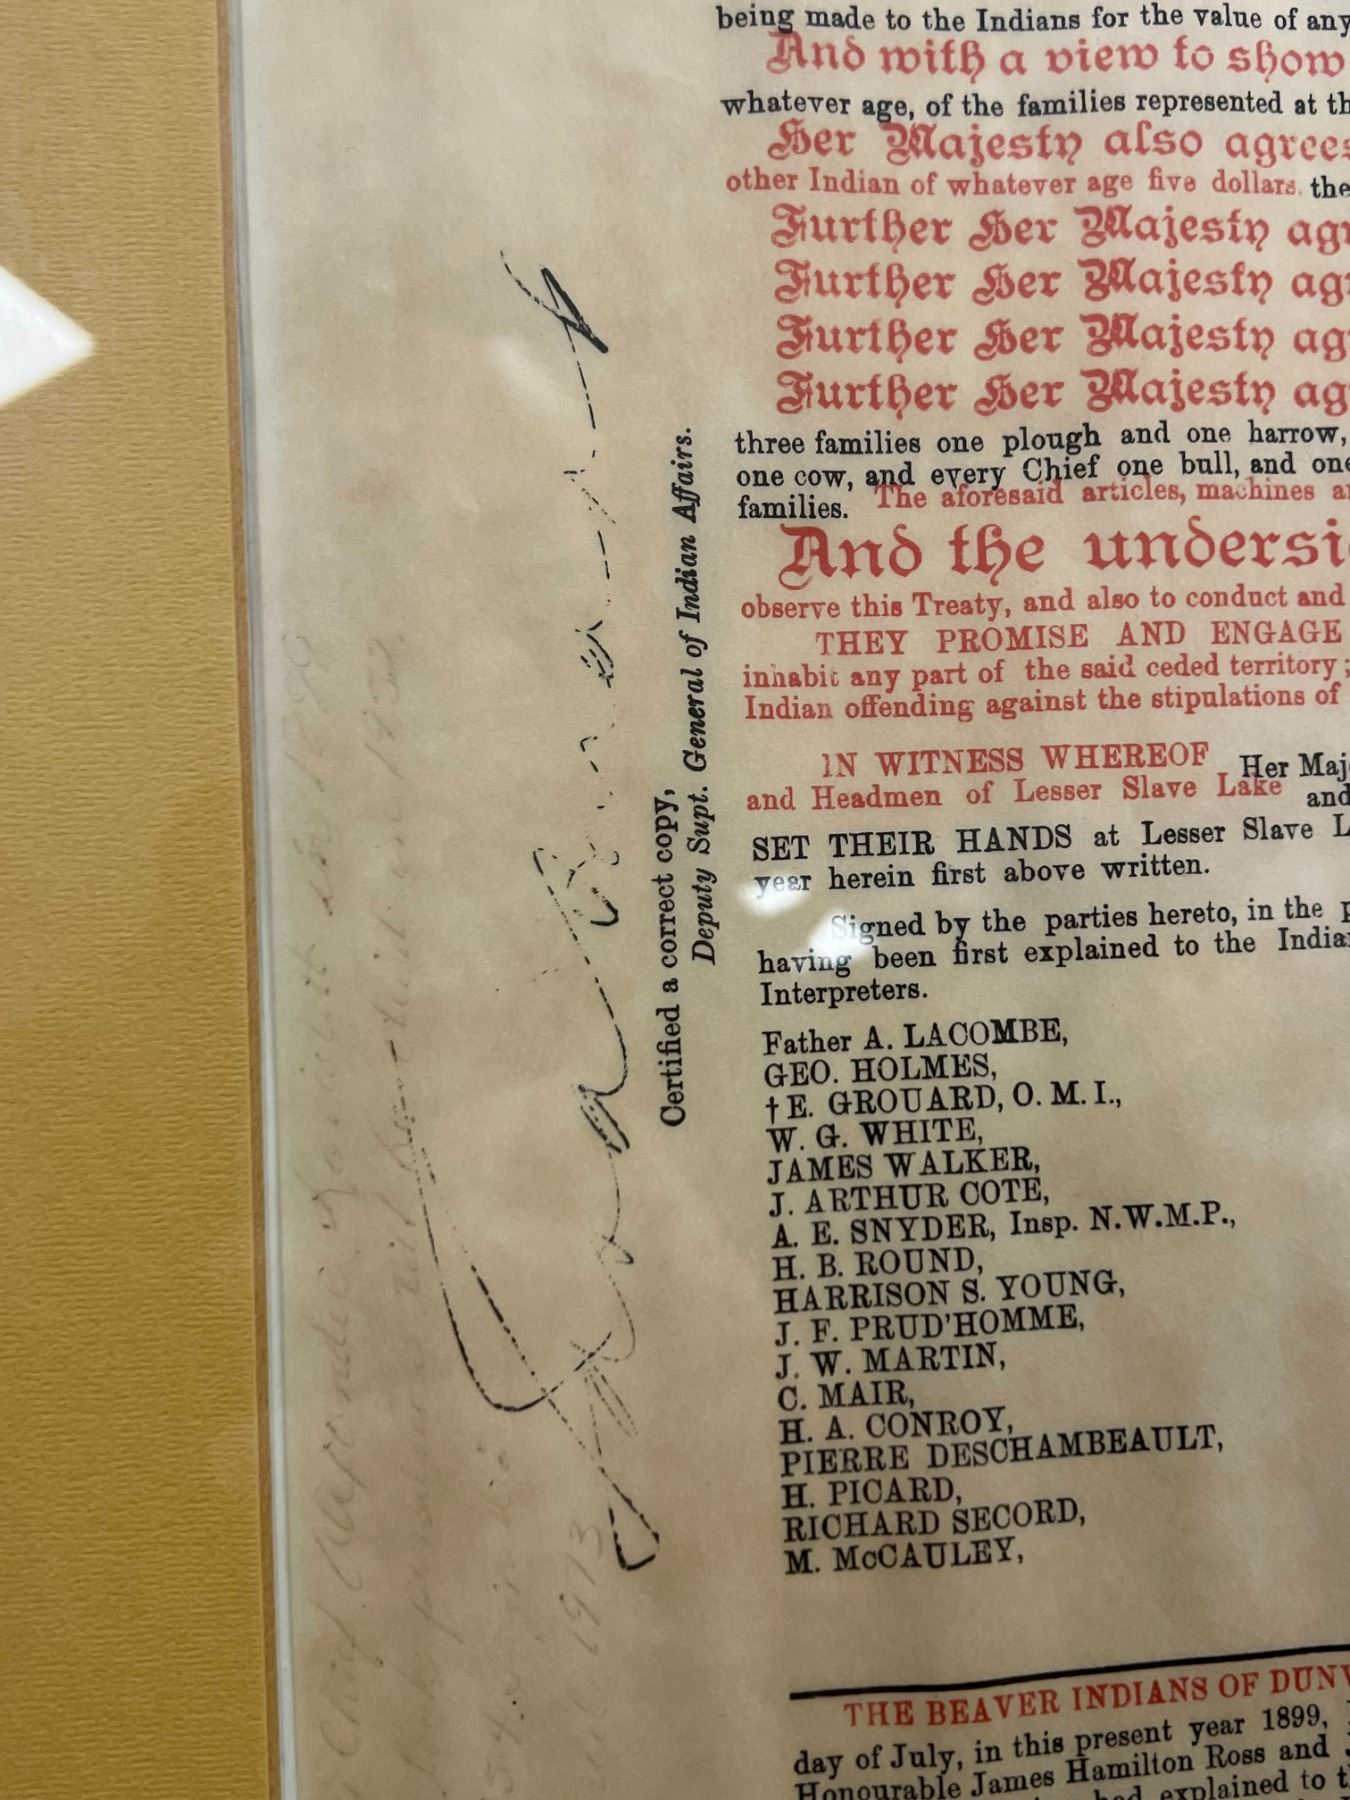 being made to the Indians for the value of any
And with a view to show
whatever age, of the families represented at th
Her Majesty also agrees
other Indian of whatever age five dollars. the
Further Her Majesty agr
Further Her Majesty agr
Further Her Majesty ag
Further Her Majesty ag
three families one plough and one harrow,
one cow, and every Chief one bull, and one
families. The aforesaid articles, machines a
And the undersi
observe this Treaty, and also to conduct and
THEY PROMISE AND ENGAGE
inhabit any part of the said ceded territory;
Indian offending against the stipulations of
IN WITNESS WHEREOF Her Maj
and Headmen of Lesser Slave Lake and
SET THEIR HANDS at Lesser Slave L
year herein first above written.
Signed by the parties hereto, in the p
having been first explained to the India
Interpreters.
Father A. LACOMBE,
GEO. HOLMES,
†E. GROUARD, O. M. I.,
W. G. WHITE,
JAMES WALKER,
J. ARTHUR COTE,
A. E. SNYDER, Insp. N.W.M.P.,
H. B. ROUND,
HARRISON S. YOUNG,
J. F. PRUD'HOMME,
J. W. MARTIN,
C. MAIR,
H. A. CONROY,
PIERRE DESCHAMBEAULT,
H. PICARD,
RICHARD SECORD,
M. McCAULEY,
THE BEAVER INDIANS OF DUNV
day of July, in this present year 1899,
Honourable James Hamilton Ross and
had explained to t
Certified a correct copy,
Deputy Supt. General of Indian Affairs.
Chief
1973